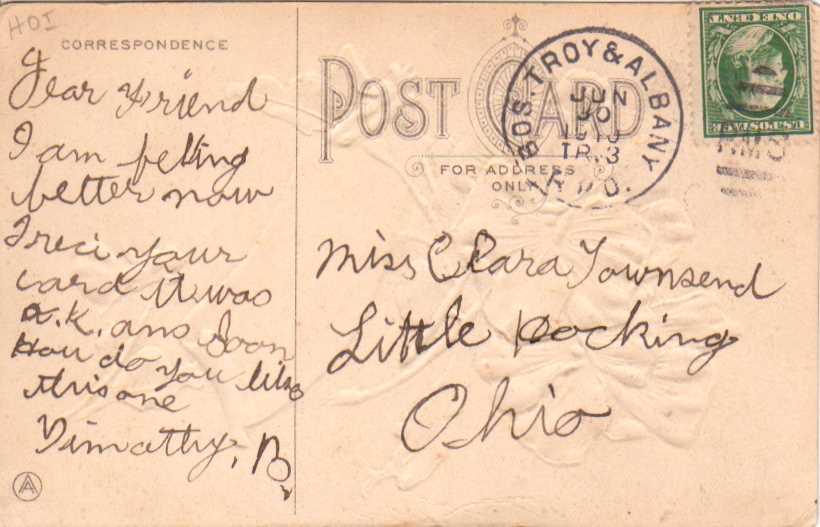 HOI
CORRESPONDENCE
Dear Friend
I am felling
better now
I reci your
card it was
o.K. ans Soon
How do you like
this one
Timathy, B.
POST CARD
FOR ADDRESS
ONLY
BOS. TROY & ALBANY
JUN
30
TR.3
R.P.O.
ONE CENT
U.S. POSTAGE
RMS
Miss Clara Townsend
Little Hocking
Ohio
A